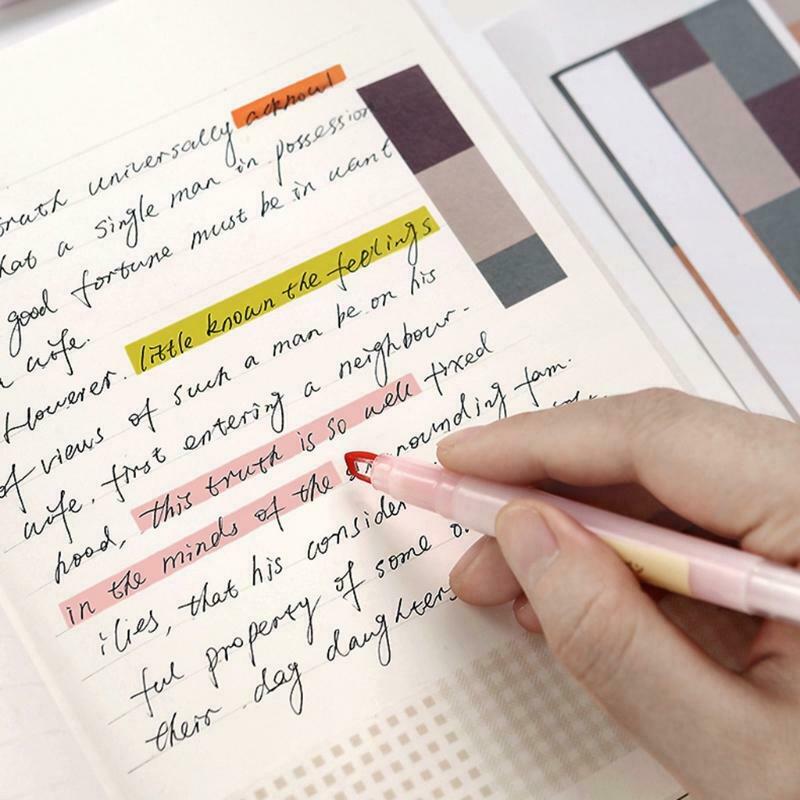 truth universally acknowl
hat a single man in possession
good fortune must be in want
wife.
However. little known the feelings
of views of such a man be on his
wife. first entering a neighbour-
hood, this truth is so well fixed
in the minds of the rounding fam.
ilies, that his consider
ful property of some
their dag daughters